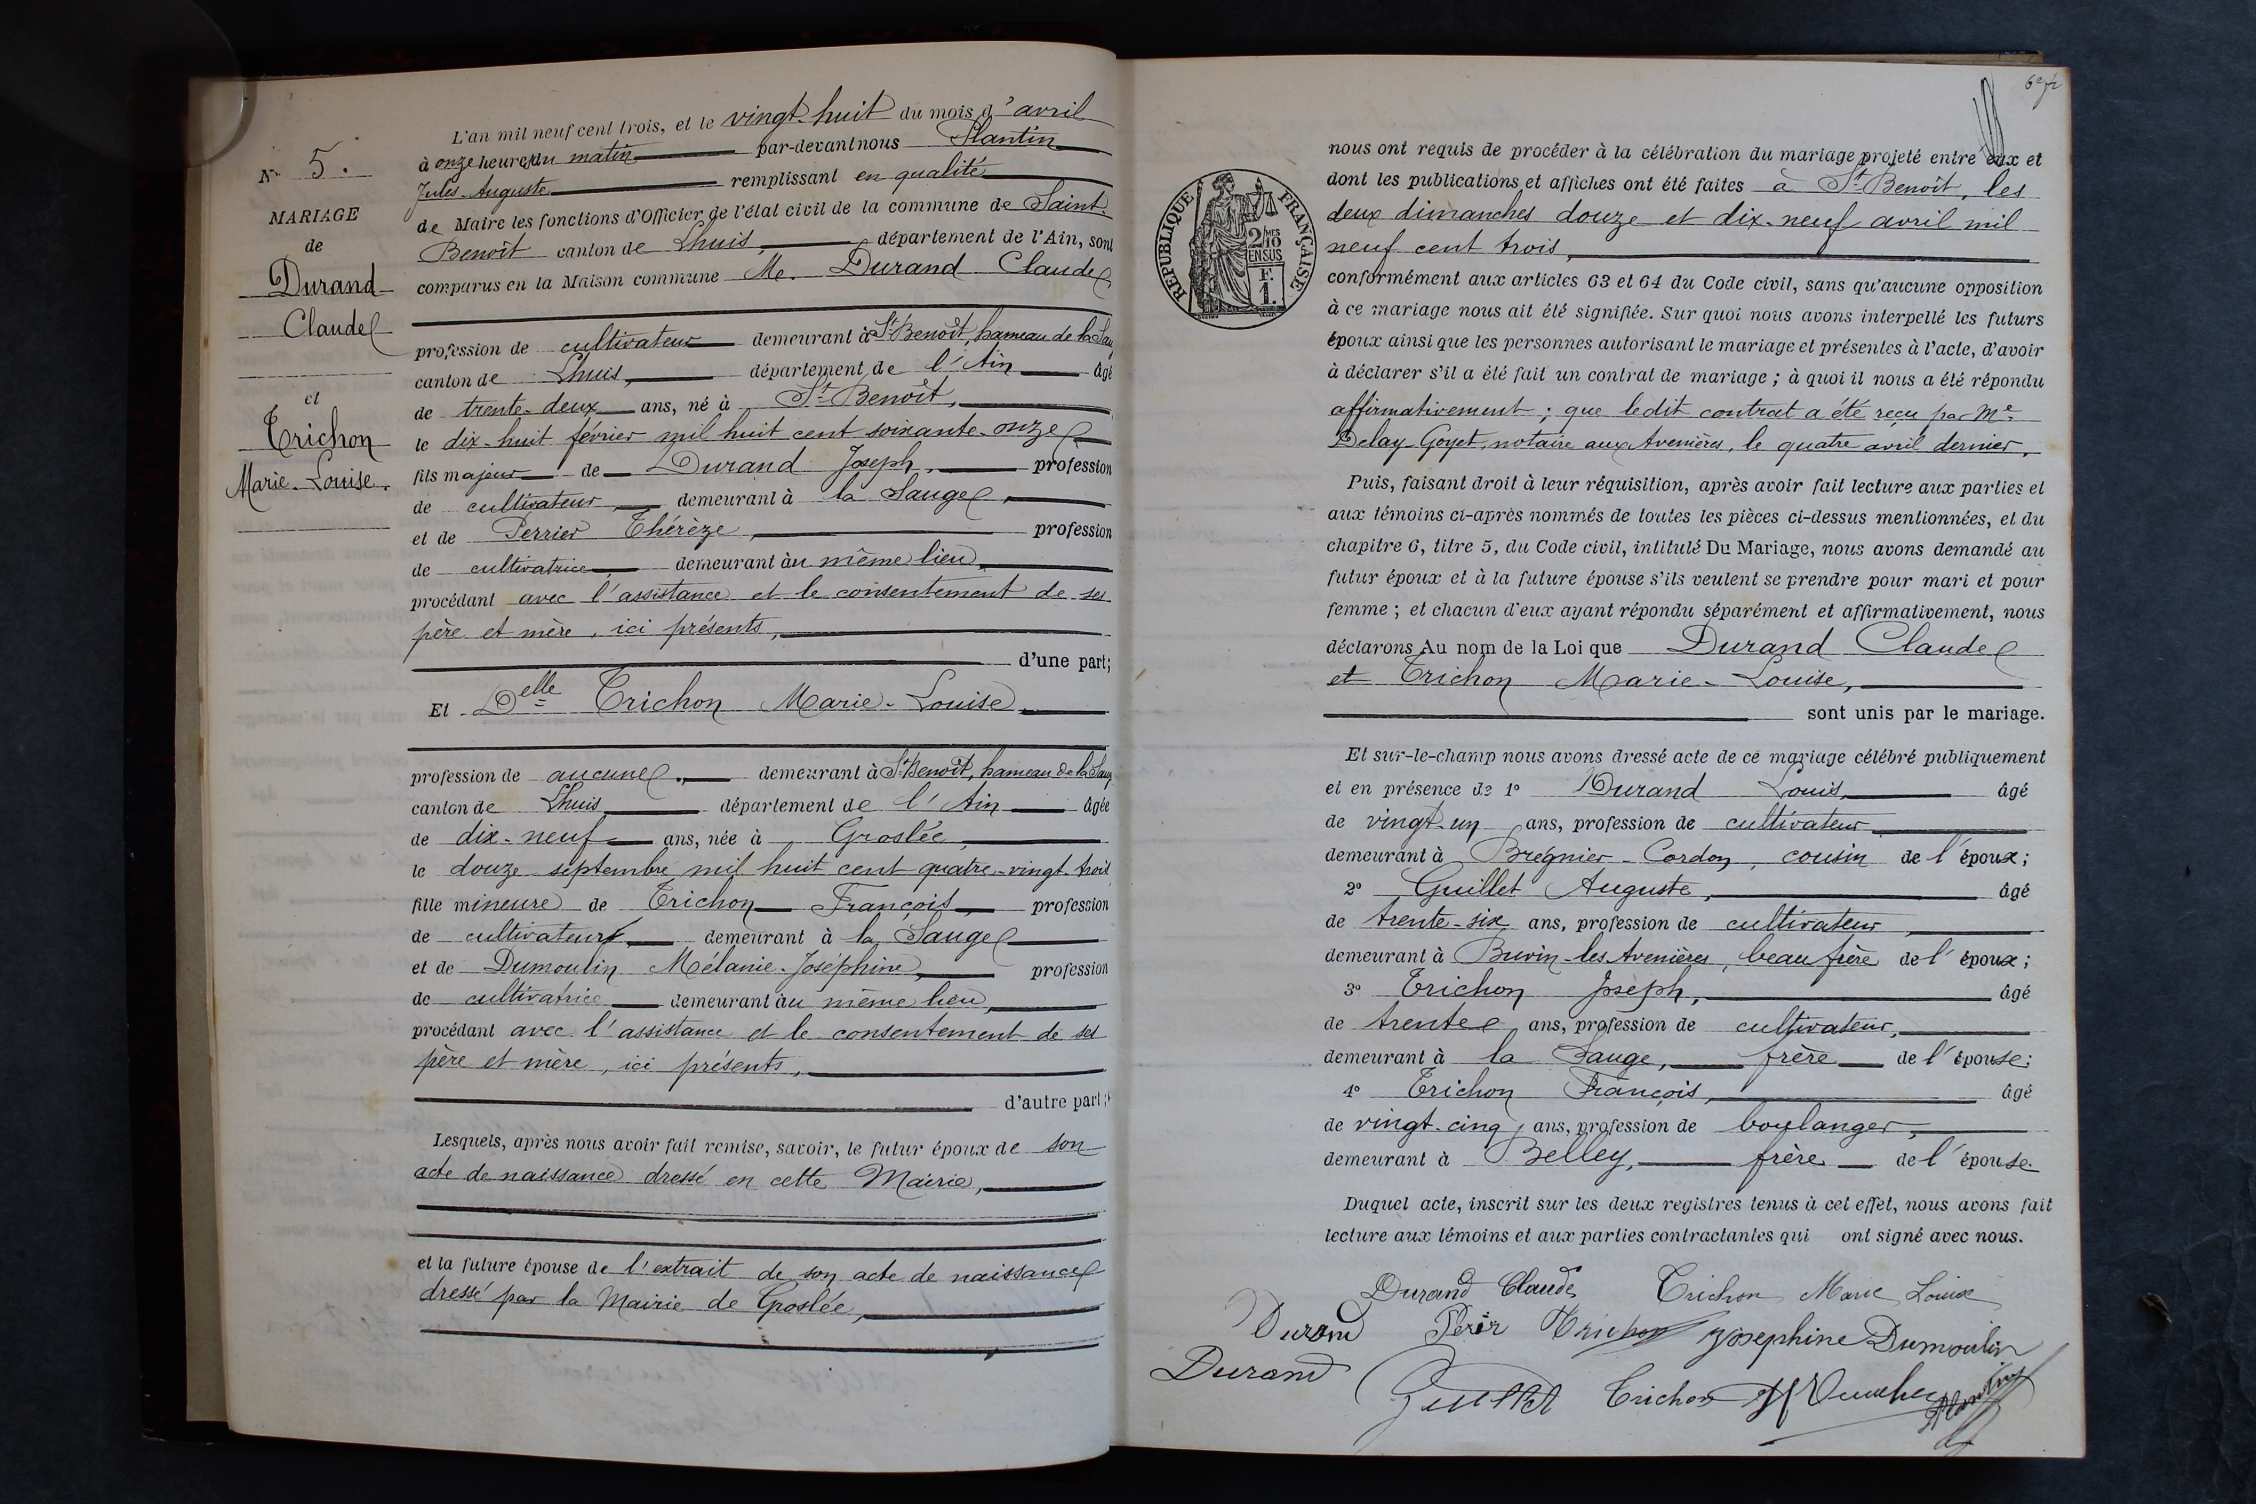 L'an mil neuf cent trois, et le vingt-huit du mois d'avril
à onze heures du matin par-devant nous Plantin
Jules-Auguste remplissant en qualité
de Maire les fonctions d'Officier de l'état civil de la commune de Saint-
Benoît canton de Lhuis, département de l'Ain, sont
comparus en la Maison commune Mr. Durand Claude
N° 5.
MARIAGE
de
Durand
Claude
et
Trichon
Marie-Louise.
profession de cultivateur demeurant à St-Benoît, hameau de la Sauge
canton de Lhuis, département de l'Ain âgé
de trente-deux ans, né à St-Benoît,
le dix-huit février mil huit cent soixante-onze
fils majeur de Durand Joseph, profession
de cultivateur, demeurant à la Sauge,
et de Perrier Thérèze, profession
de cultivatrice, demeurant au même lieu,
procédant avec l'assistance et le consentement de ses
père et mère, ici présents,
d'une part;
Et Delle Trichon Marie-Louise
profession de aucune, demeurant à St-Benoît, hameau de la Sauge
canton de Lhuis département de l'Ain âgée
de dix-neuf ans, née à Groslée,
le douze septembre mil huit cent quatre-vingt-trois
fille mineure de Trichon François, profession
de cultivateur, demeurant à la Sauge
et de Dumoulin Mélanie-Joséphine, profession
de cultivatrice demeurant au même lieu,
procédant avec l'assistance et le consentement de ses
père et mère, ici présents,
d'autre part;
Lesquels, après nous avoir fait remise, savoir, le futur époux de son
acte de naissance dressé en cette Mairie,
et la future épouse de l'extrait de son acte de naissance
dressé par la Mairie de Groslée,
nous ont requis de procéder à la célébration du mariage projeté entre eux et
dont les publications et affiches ont été faites à St-Benoît, les
deux dimanches douze et dix-neuf avril mil
neuf cent trois,
RÉPUBLIQUE FRANÇAISE
2/10 MES
EN SUS
F.
1.
conformément aux articles 63 et 64 du Code civil, sans qu'aucune opposition
à ce mariage nous ait été signifiée. Sur quoi nous avons interpellé les futurs
époux ainsi que les personnes autorisant le mariage et présentes à l'acte, d'avoir
à déclarer s'il a été fait un contrat de mariage ; à quoi il nous a été répondu
affirmativement ; que ledit contrat a été reçu par Me
Delay-Goyet, notaire aux Avenières, le quatre avril dernier,
Puis, faisant droit à leur réquisition, après avoir fait lecture aux parties et
aux témoins ci-après nommés de toutes les pièces ci-dessus mentionnées, et du
chapitre 6, titre 5, du Code civil, intitulé Du Mariage, nous avons demandé au
futur époux et à la future épouse s'ils veulent se prendre pour mari et pour
femme ; et chacun d'eux ayant répondu séparément et affirmativement, nous
déclarons Au nom de la Loi que Durand Claude
et Trichon Marie-Louise,
sont unis par le mariage.
Et sur-le-champ nous avons dressé acte de ce mariage célébré publiquement
et en présence de 1° Durand Louis, âgé
de vingt-un ans, profession de cultivateur
demeurant à Brégnier-Cordon, cousin de l'époux;
2° Guillet Auguste, âgé
de trente-six ans, profession de cultivateur,
demeurant à Buvin-les Avenières, beau frère de l'époux;
3° Trichon Joseph, âgé
de trente ans, profession de cultivateur,
demeurant à la Sauge, frère de l'épouse;
4° Trichon François, âgé
de vingt-cinq ans, profession de boulanger,
demeurant à Belley, frère de l'épouse.
Duquel acte, inscrit sur les deux registres tenus à cet effet, nous avons fait
lecture aux témoins et aux parties contractantes qui ont signé avec nous.
Durand Claude Trichon Marie Louise
Durand Trichon Josephine Dumoulin
Durand Guillet Trichon Plantin